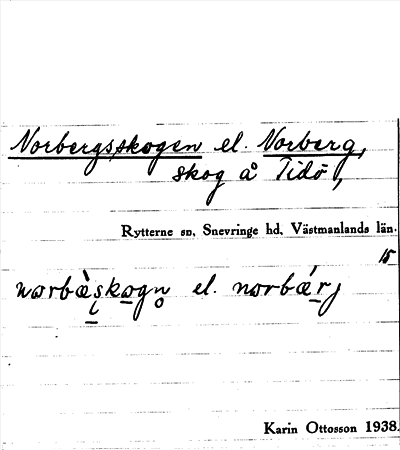 Norbergsskogen el. Norberg,
skog å Tidö,
Rytterne sn, Snevringe hd, Västmanlands län.
15
norbæ̀skogn̥ el. norbǽrj
Karin Ottosson 1938.